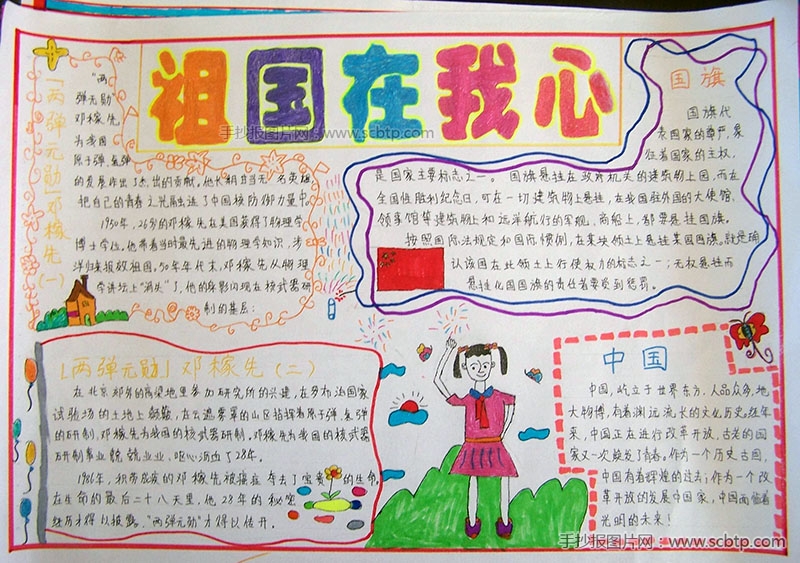 祖国在我心
手抄报图片网:www.scbtp.com
「两弹元勋」邓稼先(一)
"两
弹元勋"
邓稼先
为我国
原子弹、氢弹
的发展作出了杰出的贡献。他长期担当无名英雄
把自己的青春之光融进了中国核防御力量中。
1950年,26岁的邓稼先在美国获得了物理学
博士学位,他带着当时最先进的物理学知识,涉
洋归来报效祖国。50年年代末,邓稼先从物理
学讲坛上"消失"了,他的身影闪现在核武器研
制的基层:
国旗
国旗代
表国家的尊严,象
征着国家的主权,
是国家主要标志之一。国旗悬挂在政府机关的建筑物上国,而在
全国性胜利纪念日,可在一切建筑物上悬挂,在我国驻外国的大使馆、
领事馆等建筑物上和远洋航行的军舰、商船上,都要悬挂国旗。
按照国际法规定和国际惯例,在某块领土上悬挂某国国旗,就是确
认该国在此领土上行使权力的标志之一;无权悬挂而
悬挂化国国旗的责任者要受到惩罚。
「两弹元勋」邓稼先(二)
在北京郊外的高粱地里参加研究所的兴建,在罗布泊国家
试验场的土地上颠簸,在云遮雾罩的山区指挥着原子弹、氢弹
的研制,邓稼先为我国的核武器研制。邓稼先为我国的核武器
研制事业兢兢业业,呕心沥血了28年。
1986年,积劳成疾的邓稼先被癌症夺去了宝贵的生命,
在生命的最后二十八天里,他28年的秘密
经历才得以披露,"两弹元勋"才得以传开。
中国
中国,屹立于世界东方,人品众多,地
大物博,有着渊远流长的文化历史。近年
来,中国正在进行改革开放,古老的国
家又一次焕发了青春。作为一个历史古国,
中国有着辉煌的过去;作为一个改
革开放的发展中国家,中国面临着
光明的未来!
手抄报图片网:www.scbtp.com